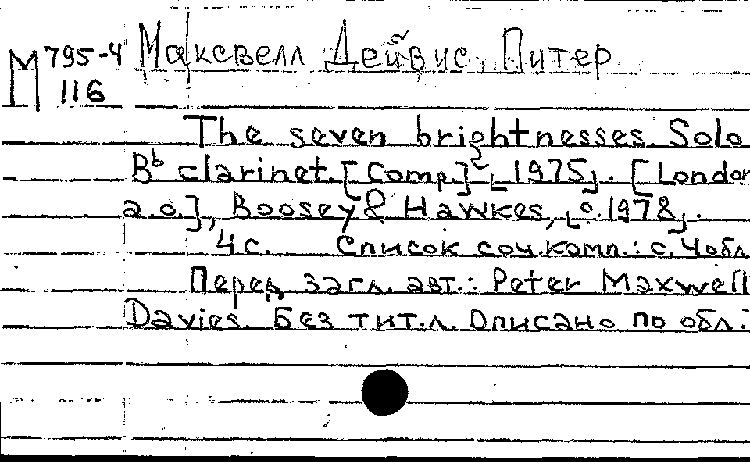 М 795-4 Максвелл Дейвис, Питер
116
The seven brightnesses. Solo
Bb clarinet. [Comp.] 1975. [London
a.o.], Boosey & Hawkes, c.1978.
4 с. Список соч. комп.: с. 4 обл.
Перед загл. авт.: Peter Maxwell
Davies. Без тит. л. Описано по обл.